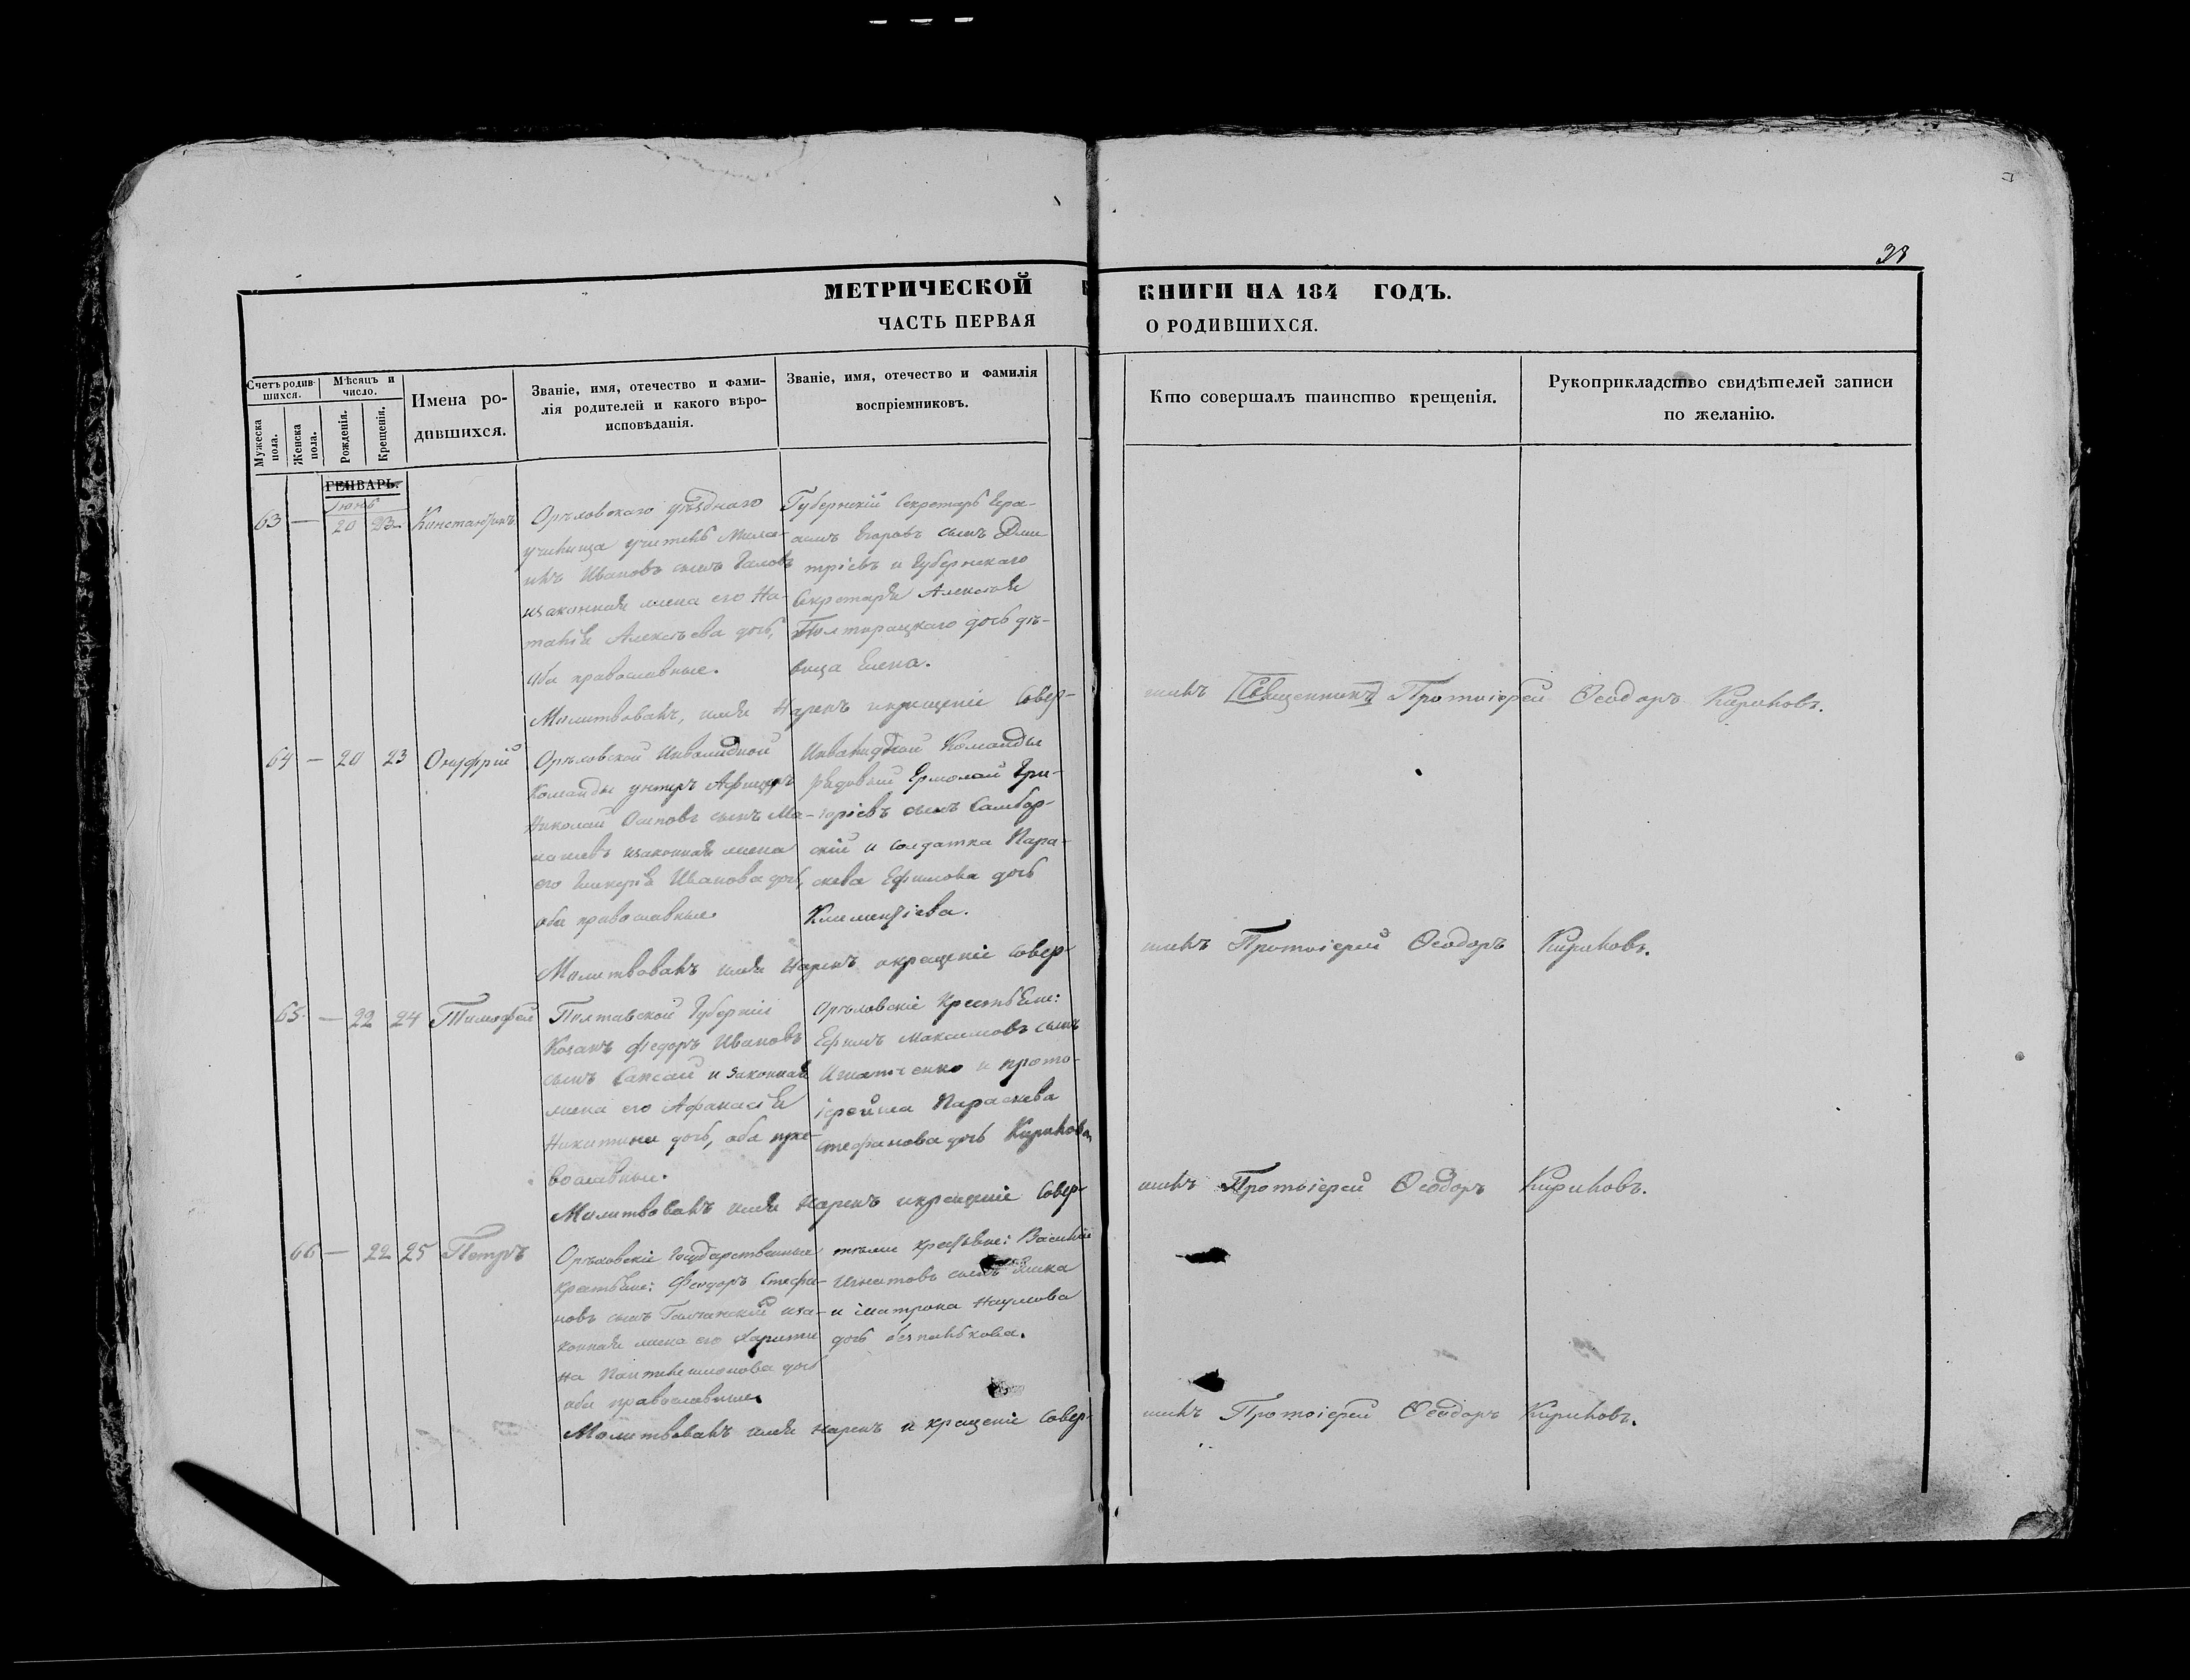 38
МЕТРИЧЕСКОЙ КНИГИ НА 184 ГОДЪ.
ЧАСТЬ ПЕРВАЯ О РОДИВШИХСЯ.
Счетъ родившихся.
Мужеска пола.
Женска пола.
Мѣсяцъ и число.
Рожденія.
Крещенія.
Имена родившихся.
Званіе, имя, отечество и фамилія родителей и какого вѣроисповѣданія.
Званіе, имя, отечество и фамилія воспріемниковъ.
Кто совершалъ таинство крещенія.
Рукоприкладство свидѣтелей записи по желанію.
ГЕНВАРЬ.
Іюнь
63 — 20 23 Константинъ
Орѣховскаго уѣзднаго
училища учитель
Ивановъ сынъ
изаконная жена его На-
талія Алексѣева дочь,
оба православные.
Губернскій Секретарь Гера-
симъ Егоровъ сынъ Дми
тріевъ и Губернскаго
Секретаря Алексѣя
дочь дѣ-
вица Елена.
Молитвовалъ, имя Нарекъ икрещеніе Совер-
шилъ Священникъ Протоіерей Ѳеодоръ Кириковъ.
64 — 20 23 Онуфрій
Орѣховской Инвалидной
Команды унтеръ Афицеръ
Николай Осиповъ сынъ Ма-
изаконная жена
его Гликерія Иванова дочь,
оба православные.
Инвалидной Команды
рядовый Ермолай Гри-
горіевъ сынъ Самбор-
скій и солдатка Пара-
скева Ефимова дочь
Климентіева.
Молитвовалъ имя Нарекъ икрещеніе Совер-
шилъ Протоіерей Ѳеодоръ Кириковъ.
65. — 22 24 Тимофей
Полтавской Губерніи
Козакъ Федоръ Ивановъ
сынъ и законная
жена его Афанасія
Никитина дочь, оба пра-
вославные.
Орѣховскіе Крестьяне:
Ефимъ Максимовъ сынъ
Игнатченко и прото-
іерейша Параскева
Стефанова дочь Кирикова
Молитвовалъ имя Нарекъ икрещеніе Совер-
шилъ Протоіерей Ѳеодоръ Кириковъ.
66 — 22 25 Петръ
Орѣховскіе Государственные
крестьяне: Феодоръ Стефа-
новъ сынъ иза-
конная жена его Харити
на Пантелеимонова дочь
оба православные.
тѣже крестьяне: Василій
Игнатовъ сынъ
и Матрона Наумова
дочь
Молитвовалъ имя нарекъ и крещеніе Совер-
шилъ Протоіерей Ѳеодоръ Кириковъ.